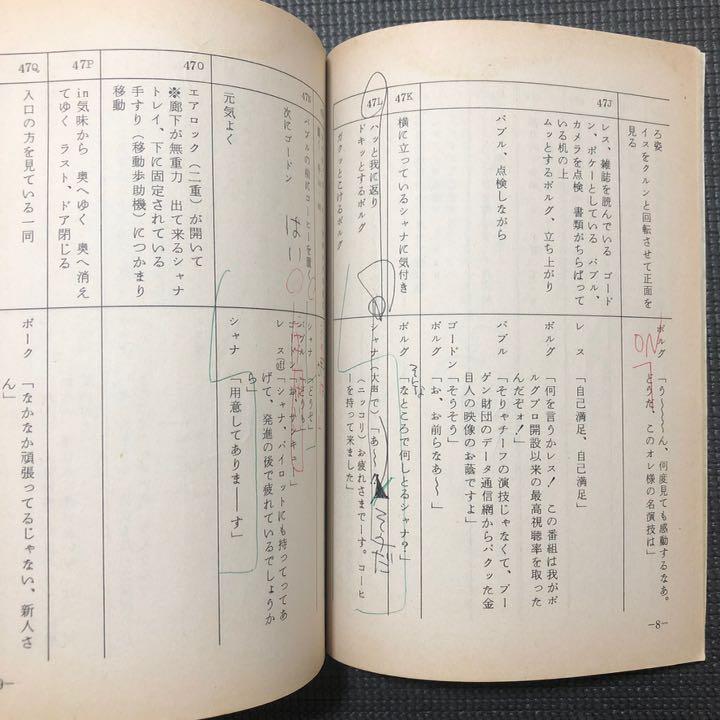 ろ姿
イスをクルンと回転させて正面を
見る
ボルグ「う〜〜〜ん、何度見ても感動するなあ。
どうだ、このオレ様の名演技は」
ON
47J
レス、雑誌を読んでいる ゴード
ン、ポケーとしている バブル、
カメラを点検 書類がちらばって
いる机の上
ムッとするボルグ、立ち上がり
レス「自己満足、自己満足」
ボルグ「何を言うかレス! この番組は我がボ
ルグプロ開設以来の最高視聴率を取った
んだぞォ!」
バブル、点検しながら
バブル「そりゃチーフの演技じゃなくて、ブー
ゲン財団のデータ通信網からパクッた金
目人の映像のお蔭ですよ」
ゴードン「そうそう」
ボルグ「お、お前らなあ〜」
47K
横に立っているシャナに気付き
ボルグ「なところで何しとるシャナ?」
47L
ハッと我に返り
ドキッとするボルグ
ガクッとこけるボルグ
シャナ(大声で)「あ〜〜
(ニッコリ)お疲れさまでーす。コーヒ
ーを持って来ました」
47N
バブルの前にコーヒーを置く
次にゴードン
はい
シャナ「どうぞ」
レス「シャナ、パイロットにも持ってってあ
げて、発進の後で疲れているでしょうか
ら」
元気よく
シャナ「用意してありまーーす」
47O
エアロック(二重)が開いて
※廊下が無重力 出て来るシャナ
トレイ、下に固定されている
手すり(移動歩助機)につかまり
移動
47P
in気味から 奥へゆく 奥へ消え
てゆく ラスト、ドア閉じる
47Q
入口の方を見ている一同
ボーク「なかなか頑張ってるじゃない、新人さ
ん」
—8—